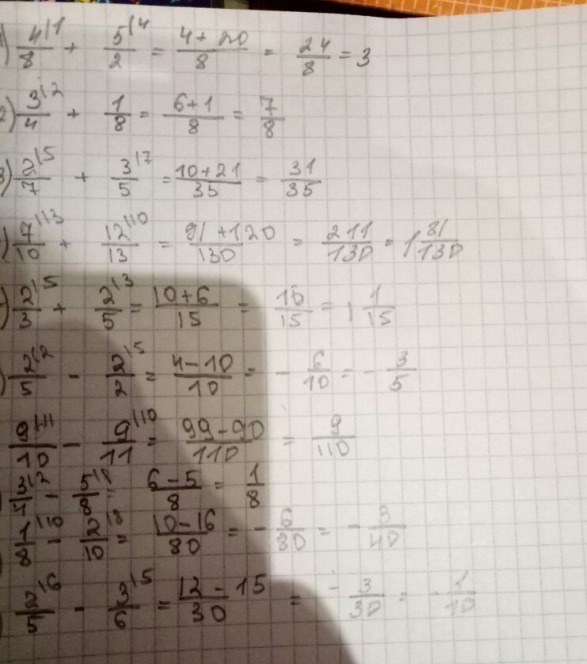 1) 4/8 |1 + 5/2 |4 = (4+20)/8 = 24/8 = 3
2) 3/4 |2 + 1/8 = (6+1)/8 = 7/8
3) 2/7 |5 + 3/5 |7 = (10+21)/35 = 31/35
) 7/10 |13 + 12/13 |10 = (91+120)/130 = 211/130 = 1 81/130
) 2/3 |5 + 2/5 |3 = (10+6)/15 = 16/15 = 1 1/15
) 2/5 |2 - 2/2 |5 = (4-10)/10 = - 6/10 = - 3/5
9/10 |11 - 9/11 |10 = (99-90)/110 = 9/110
3/4 |2 - 5/8 |1 = (6-5)/8 = 1/8
1/8 |10 - 2/10 |8 = (10-16)/80 = - 6/80 = - 3/40
) 2/5 |6 - 3/6 |5 = (12-15)/30 = - 3/30 = - 1/10